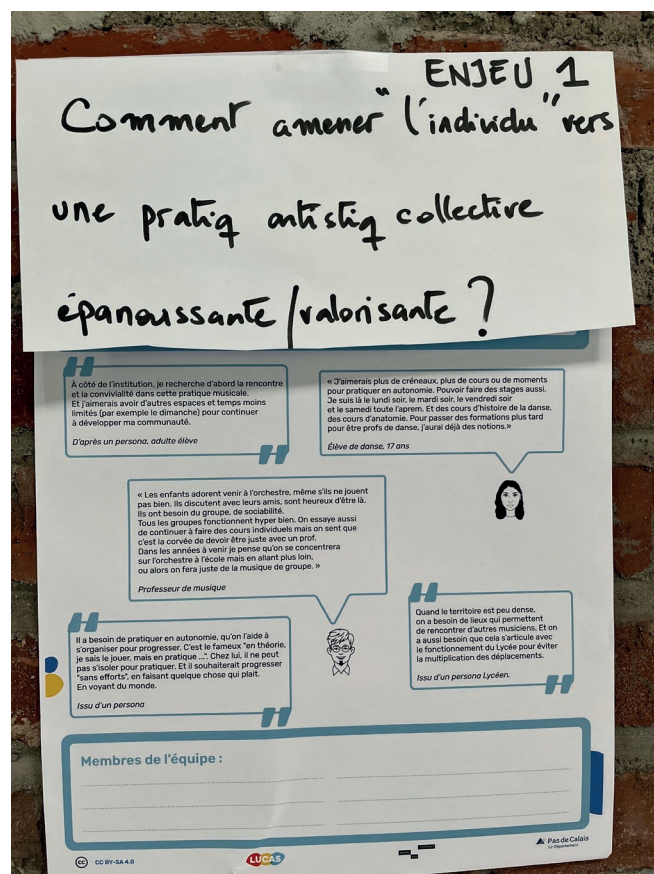 ENJEU 1
Comment amener "l'individu" vers
une pratiq artistiq collective
épanouissante/valorisante ?
À côté de l'institution, je recherche d'abord la rencontre
et la convivialité dans cette pratique musicale.
Et j'aimerais avoir d'autres espaces et temps moins
limités (par exemple le dimanche) pour continuer
à développer ma communauté.
D'après un persona, adulte élève
« J'aimerais plus de créneaux, plus de cours ou de moments
pour pratiquer en autonomie. Pouvoir faire des stages aussi.
Je suis là le lundi soir, le mardi soir, le vendredi soir
et le samedi toute l'aprem. Et des cours d'histoire de la danse,
des cours d'anatomie. Pour passer des formations plus tard
pour être profs de danse, j'aurai déjà des notions.»
Élève de danse, 17 ans
« Les enfants adorent venir à l'orchestre, même s'ils ne jouent
pas bien. Ils discutent avec leurs amis, sont heureux d'être là.
Ils ont besoin du groupe, de sociabilité.
Tous les groupes fonctionnent hyper bien. On essaye aussi
de continuer à faire des cours individuels mais on sent que
c'est la corvée de devoir être juste avec un prof.
Dans les années à venir je pense qu'on se concentrera
sur l'orchestre à l'école mais en allant plus loin,
ou alors on fera juste de la musique de groupe. »
Professeur de musique
Il a besoin de pratiquer en autonomie, qu'on l'aide à
s'organiser pour progresser. C'est le fameux "en théorie,
je sais le jouer, mais en pratique ...". Chez lui, il ne peut
pas s'isoler pour pratiquer. Et il souhaiterait progresser
"sans efforts", en faisant quelque chose qui plait.
En voyant du monde.
Issu d'un persona
Quand le territoire est peu dense,
on a besoin de lieux qui permettent
de rencontrer d'autres musiciens. Et on
a aussi besoin que cela s'articule avec
le fonctionnement du Lycée pour éviter
la multiplication des déplacements.
Issu d'un persona Lycéen.
Membres de l'équipe :
CC BY-SA 4.0
LUCAS
Pas de Calais
Le Département